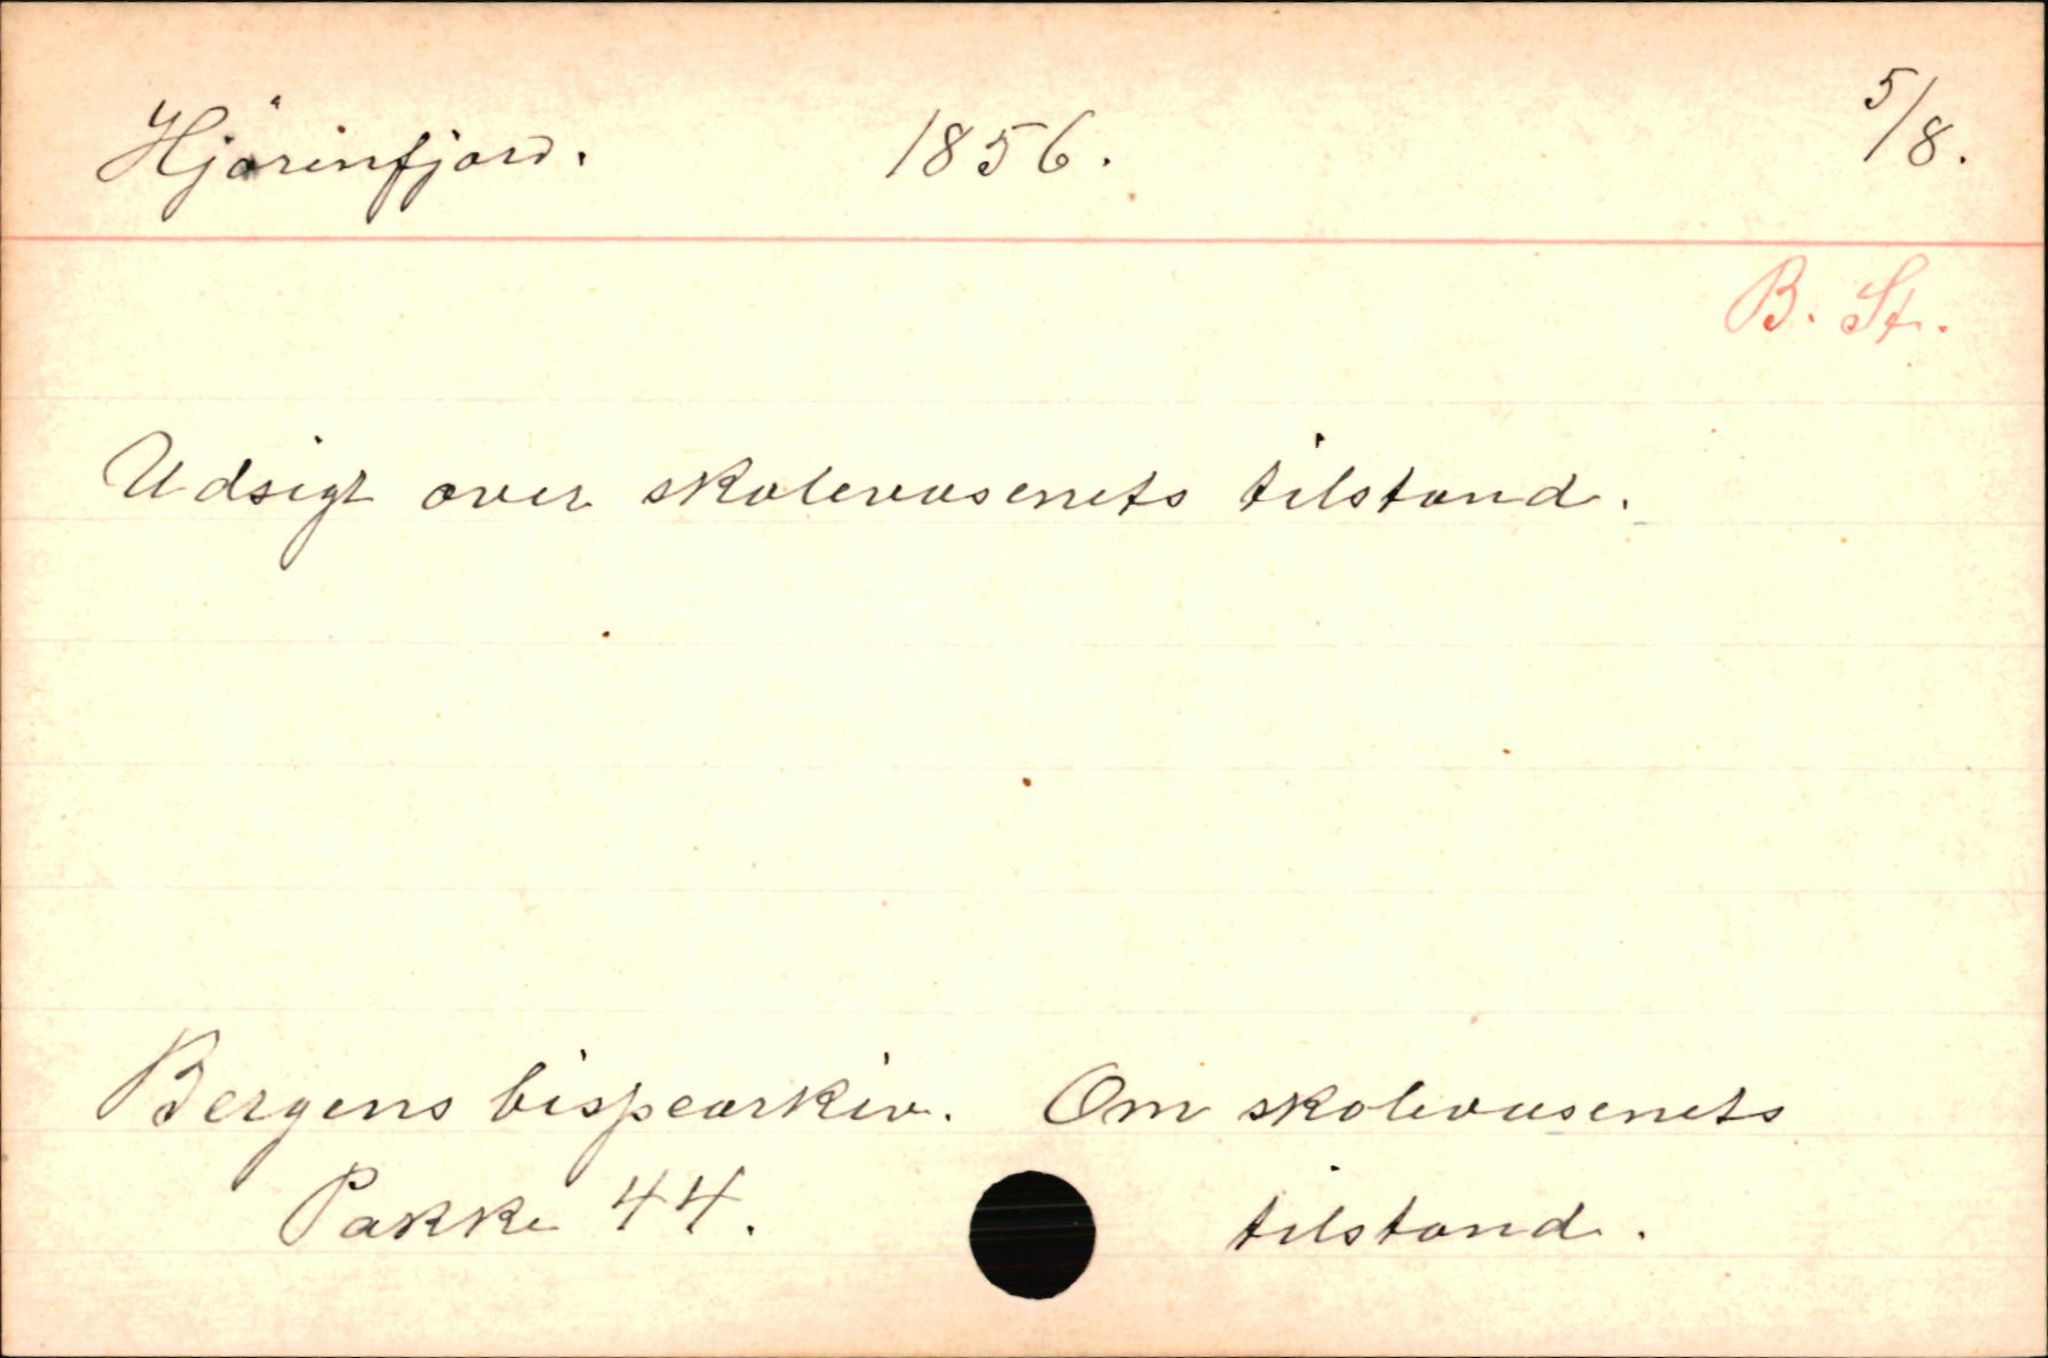 Hjörinfjord. 1856. 5/8.
B. St.
Udsigt over skolevæsenets tilstand.
Bergens bispearkiv. Om skolevæsenets
Pakke 44. tilstand.